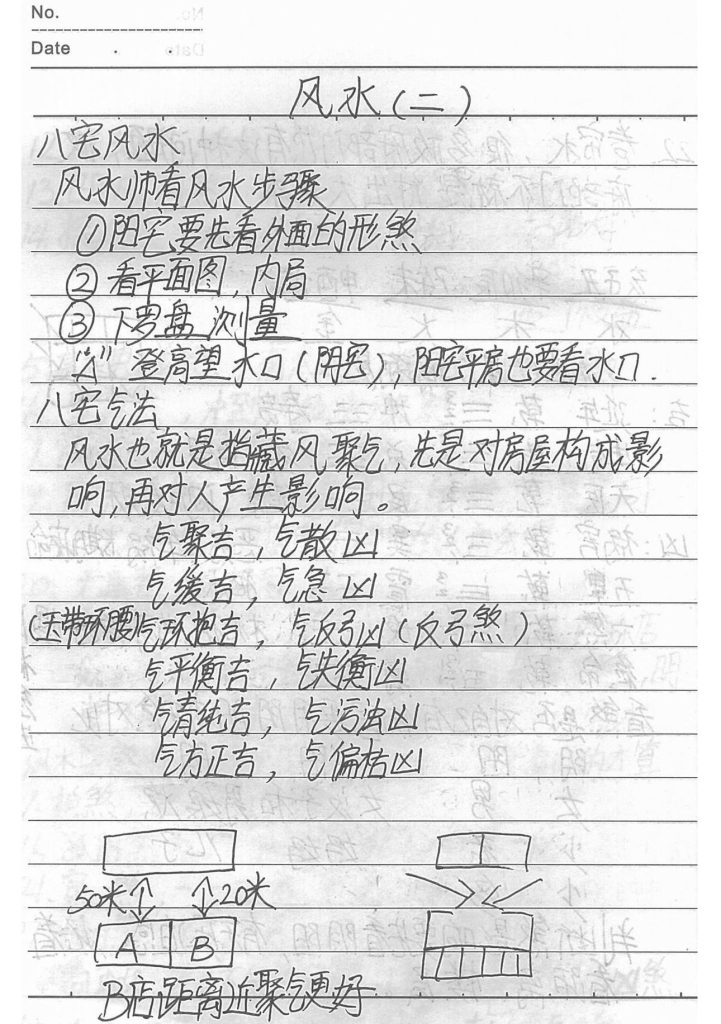 No.
Date
风水(二)
八宅风水
风水师看风水步骤
①阳宅要先看外面的形煞
②看平面图,内局
③下罗盘测量
"A" 登高望水口(阴宅),阳宅平房也要看水口.
八宅气法
风水也就是指藏风聚气,先是对房屋构成影
响,再对人产生影响。
气聚吉,气散凶
气缓吉,气急凶
(玉带环腰)气环抱吉,气反弓凶(反弓煞)
气平衡吉,气失衡凶
气清纯吉,气污浊凶
气方正吉,气偏枯凶
50米 20米
A B
B店距离近聚气更好